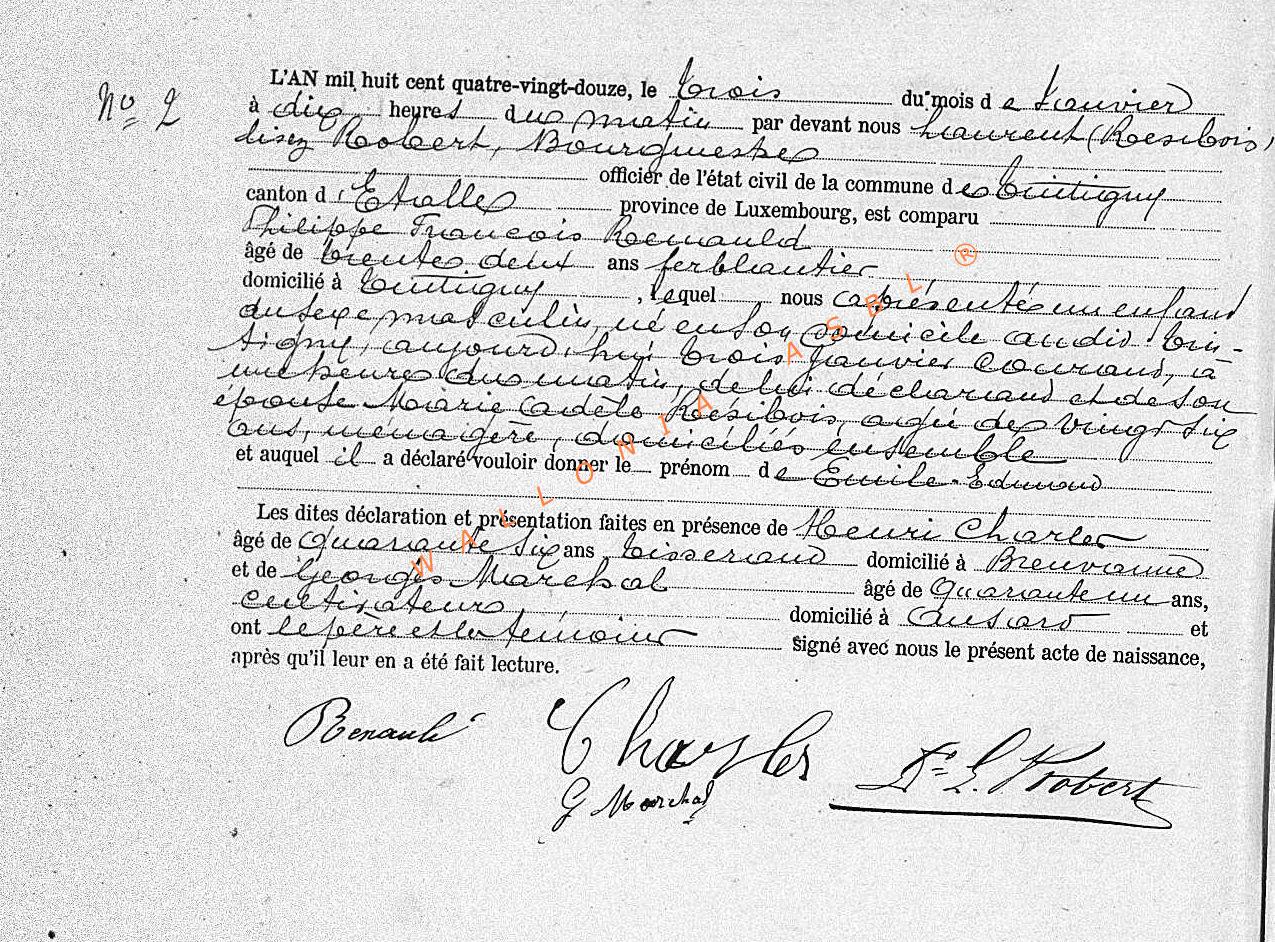 No 2
L'AN mil huit cent quatre-vingt-douze, le trois du mois de Janvier
à dix heures du matin par devant nous Laurent (Roesibois,
lisez Robert, Bourgmestre
officier de l'état civil de la commune de Tintigny
canton d'Etalle province de Luxembourg, est comparu
Philippe François Renauld
âgé de trente deux ans ferblantier
domicilié à Tintigny, lequel nous a présenté un enfant
du sexe masculin, né en son domicile audit Tin-
tigny, aujourd'hui trois Janvier courant, à
une heure du matin, de lui déclarant et de son
épouse Marie Adèle Roesibois, agée de vingt six
ans, ménagère, domiciliés ensemble
et auquel il a déclaré vouloir donner le prénom de Emile Edmond
Les dites déclaration et présentation faites en présence de Henri Charles
âgé de Quarante six ans, tisserand domicilié à Breuvanne
et de Georges Marchal âgé de Quarante un ans,
cultivateur, domicilié à Ansart et
ont le père et les témoins signé avec nous le présent acte de naissance,
après qu'il leur en a été fait lecture.
Renauld Charles
G Marchal Dr L. Robert
WALLONIA ASBL ®